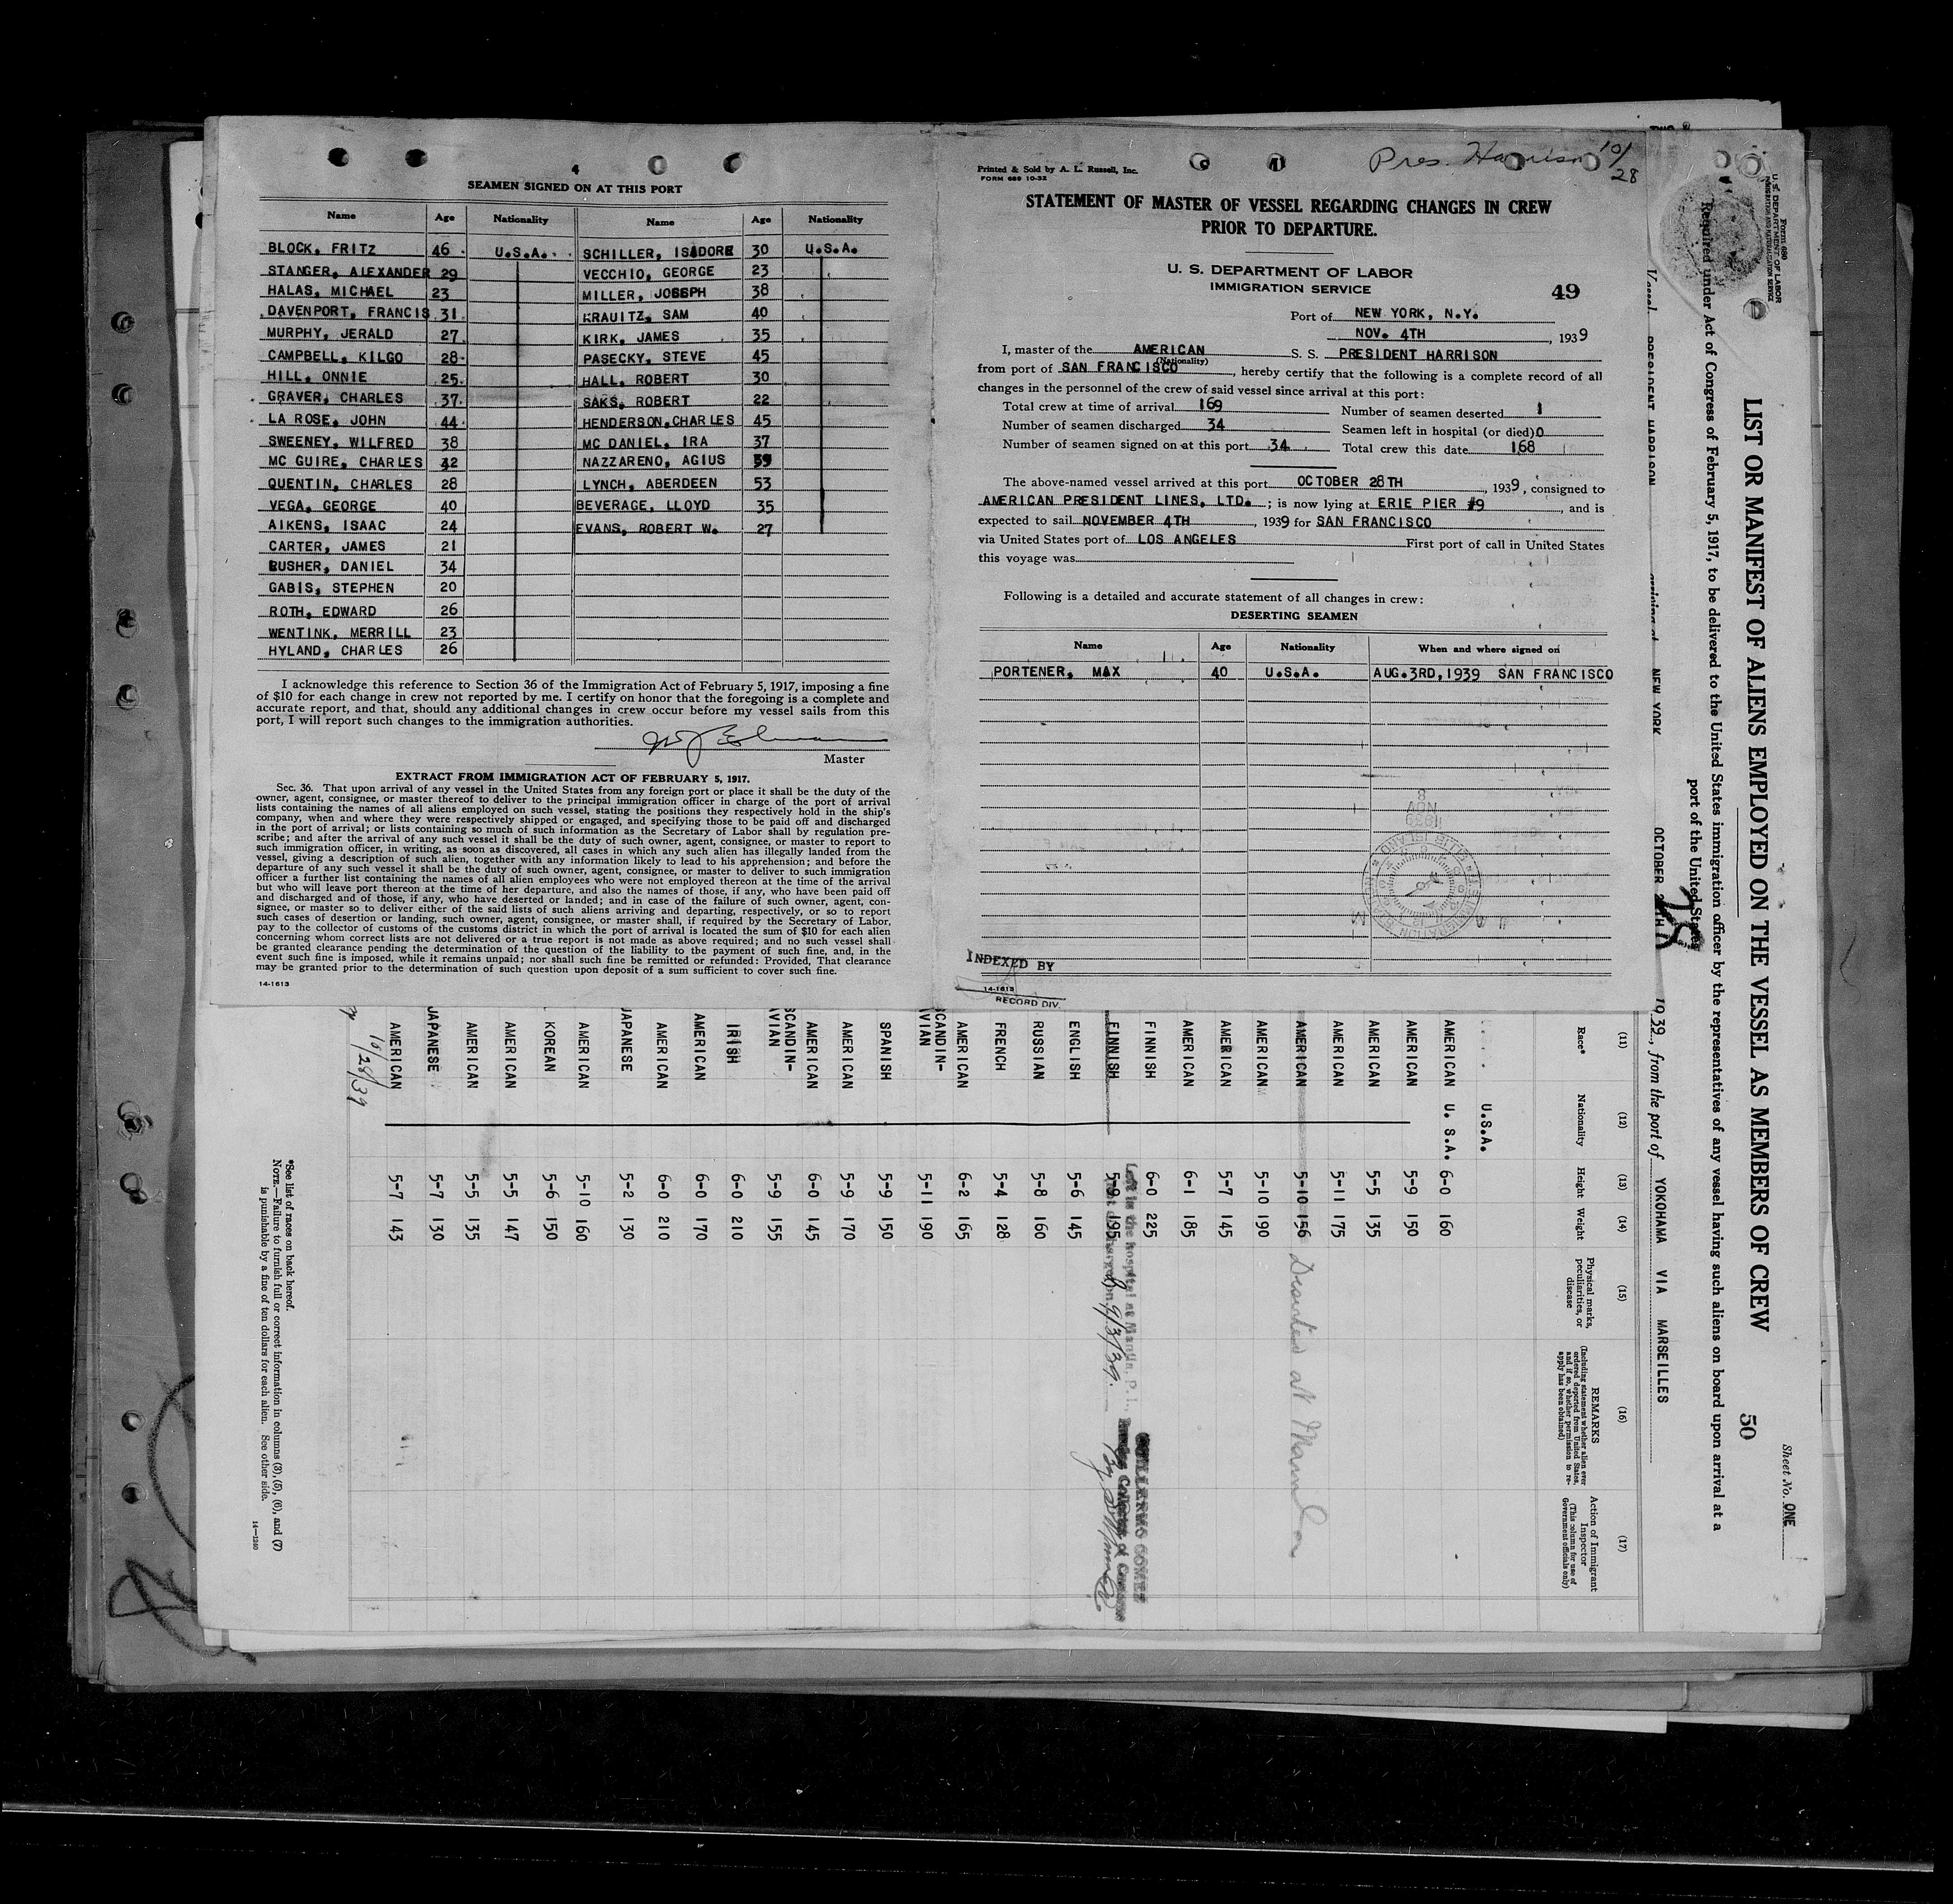 4
SEAMEN SIGNED ON AT THIS PORT
Name Age Nationality Name Age Nationality
BLOCK, FRITZ 46 U.S.A. SCHILLER, ISADORE 30 U.S.A.
STANGER, ALEXANDER 29 VECCHIO, GEORGE 23
HALAS, MICHAEL 23 MILLER, JOSEPH 38
DAVENPORT, FRANCIS 31 KRAUITZ, SAM 40
MURPHY, JERALD 27 KIRK, JAMES 35
CAMPBELL, KILGO 28 PASECKY, STEVE 45
HILL, ONNIE 25 HALL, ROBERT 30
GRAVER, CHARLES 37 SAKS, ROBERT 22
LA ROSE, JOHN 44 HENDERSON, CHARLES 45
SWEENEY, WILFRED 38 MC DANIEL, IRA 37
MC GUIRE, CHARLES 42 NAZZARENO, AGIUS 39
QUENTIN, CHARLES 28 LYNCH, ABERDEEN 53
VEGA, GEORGE 40 BEVERAGE, LLOYD 35
AIKENS, ISAAC 24 EVANS, ROBERT W. 27
CARTER, JAMES 21
BUSHER, DANIEL 34
GABIS, STEPHEN 20
ROTH, EDWARD 26
WENTINK, MERRILL 23
HYLAND, CHARLES 26
I acknowledge this reference to Section 36 of the Immigration Act of February 5, 1917, imposing a fine
of $10 for each change in crew not reported by me. I certify on honor that the foregoing is a complete and
accurate report, and that, should any additional changes in crew occur before my vessel sails from this
port, I will report such changes to the immigration authorities.
Master
EXTRACT FROM IMMIGRATION ACT OF FEBRUARY 5, 1917.
Sec. 36. That upon arrival of any vessel in the United States from any foreign port or place it shall be the duty of the
owner, agent, consignee, or master thereof to deliver to the principal immigration officer in charge of the port of arrival
lists containing the names of all aliens employed on such vessel, stating the positions they respectively hold in the ship's
company, when and where they were respectively shipped or engaged, and specifying those to be paid off and discharged
in the port of arrival; or lists containing so much of such information as the Secretary of Labor shall by regulation pre-
scribe; and after the arrival of any such vessel it shall be the duty of such owner, agent, consignee, or master to report to
such immigration officer, in writing, as soon as discovered, all cases in which any such alien has illegally landed from the
vessel, giving a description of such alien, together with any information likely to lead to his apprehension; and before the
departure of any such vessel it shall be the duty of such owner, agent, consignee, or master to deliver to such immigration
officer a further list containing the names of all alien employees who were not employed thereon at the time of the arrival
but who will leave port thereon at the time of her departure, and also the names of those, if any, who have been paid off
and discharged and of those, if any, who have deserted or landed; and in case of the failure of such owner, agent, con-
signee, or master so to deliver either of the said lists of such aliens arriving and departing, respectively, or so to report
such cases of desertion or landing, such owner, agent, consignee, or master shall, if required by the Secretary of Labor,
pay to the collector of customs of the customs district in which the port of arrival is located the sum of $10 for each alien
concerning whom correct lists are not delivered or a true report is not made as above required; and no such vessel shall
be granted clearance pending the determination of the question of the liability to the payment of such fine, and, in the
event such fine is imposed, while it remains unpaid; nor shall such fine be remitted or refunded: Provided, That clearance
may be granted prior to the determination of such question upon deposit of a sum sufficient to cover such fine.
14-1613
Printed & Sold by A. L. Russell, Inc.
FORM 689 10-32
Pres. Harrison 10/28
STATEMENT OF MASTER OF VESSEL REGARDING CHANGES IN CREW
PRIOR TO DEPARTURE.
U. S. DEPARTMENT OF LABOR
IMMIGRATION SERVICE
49
Port of NEW YORK, N.Y.
NOV. 4TH, 1939
I, master of the AMERICAN S. S. PRESIDENT HARRISON
(Nationality)
from port of SAN FRANCISCO, hereby certify that the following is a complete record of all
changes in the personnel of the crew of said vessel since arrival at this port:
Total crew at time of arrival 169 Number of seamen deserted 1
Number of seamen discharged 34 Seamen left in hospital (or died) 0
Number of seamen signed on at this port 34 Total crew this date 168
The above-named vessel arrived at this port OCTOBER 28TH, 1939, consigned to
AMERICAN PRESIDENT LINES, LTD.; is now lying at ERIE PIER #9, and is
expected to sail NOVEMBER 4TH, 1939 for SAN FRANCISCO
via United States port of LOS ANGELES First port of call in United States
this voyage was
Following is a detailed and accurate statement of all changes in crew:
DESERTING SEAMEN
Name Age Nationality When and where signed on
PORTENER, MAX 40 U.S.A. AUG. 3RD, 1939 SAN FRANCISCO
INDEXED BY
14-1613
RECORD DIV.
Form 680
U. S. DEPARTMENT OF LABOR
IMMIGRATION AND NATURALIZATION SERVICE
Sheet No. ONE
LIST OR MANIFEST OF ALIENS EMPLOYED ON THE VESSEL AS MEMBERS OF CREW 50
Required under Act of Congress of February 5, 1917, to be delivered to the United States immigration officer by the representatives of any vessel having such aliens on board upon arrival at a
port of the United States
Vessel PRESIDENT HARRISON arriving at NEW YORK OCTOBER 28 1939, from the port of YOKOHAMA VIA MARSEILLES
(11) (12) (13) (14) (15) (16) (17)
Race* Nationality Height Weight Physical marks, peculiarities, or disease REMARKS (Including statement whether alien ever ordered deported from United States, and if so, whether permission to re-apply has been obtained) Action of Immigrant Inspector (This column for use of Government officials only)
U.S.A.
AMERICAN U. S.A. 6-0 160
AMERICAN 5-9 150
AMERICAN 5-5 135
AMERICAN 5-11 175
AMERICAN 5-10 156 Deserted at Manila
AMERICAN 5-10 190
AMERICAN 5-7 145
AMERICAN 6-1 185
FINNISH 6-0 225
Left in the hospital at Manila, P. I.,
FINNISH 5-9 195 9/3/39.
GUILLERMO GOMEZ
Collector of Customs
By
ENGLISH 5-6 145
RUSSIAN 5-8 160
FRENCH 5-4 128
AMERICAN 6-2 165
SCANDIN-
AVIAN 5-11 190
SPANISH 5-9 150
AMERICAN 5-9 170
AMERICAN 6-0 145
SCANDIN-
AVIAN 5-9 155
IRISH 6-0 210
AMERICAN 6-0 170
AMERICAN 6-0 210
JAPANESE 5-2 130
AMERICAN 5-10 160
KOREAN 5-6 150
AMERICAN 5-5 147
AMERICAN 5-5 135
JAPANESE 5-7 130
AMERICAN 5-7 143
10/28/39
*See list of races on back hereof.
NOTE.—Failure to furnish full or correct information in columns (3), (5), (6), and (7)
is punishable by a fine of ten dollars for each alien. See other side.
14-1240